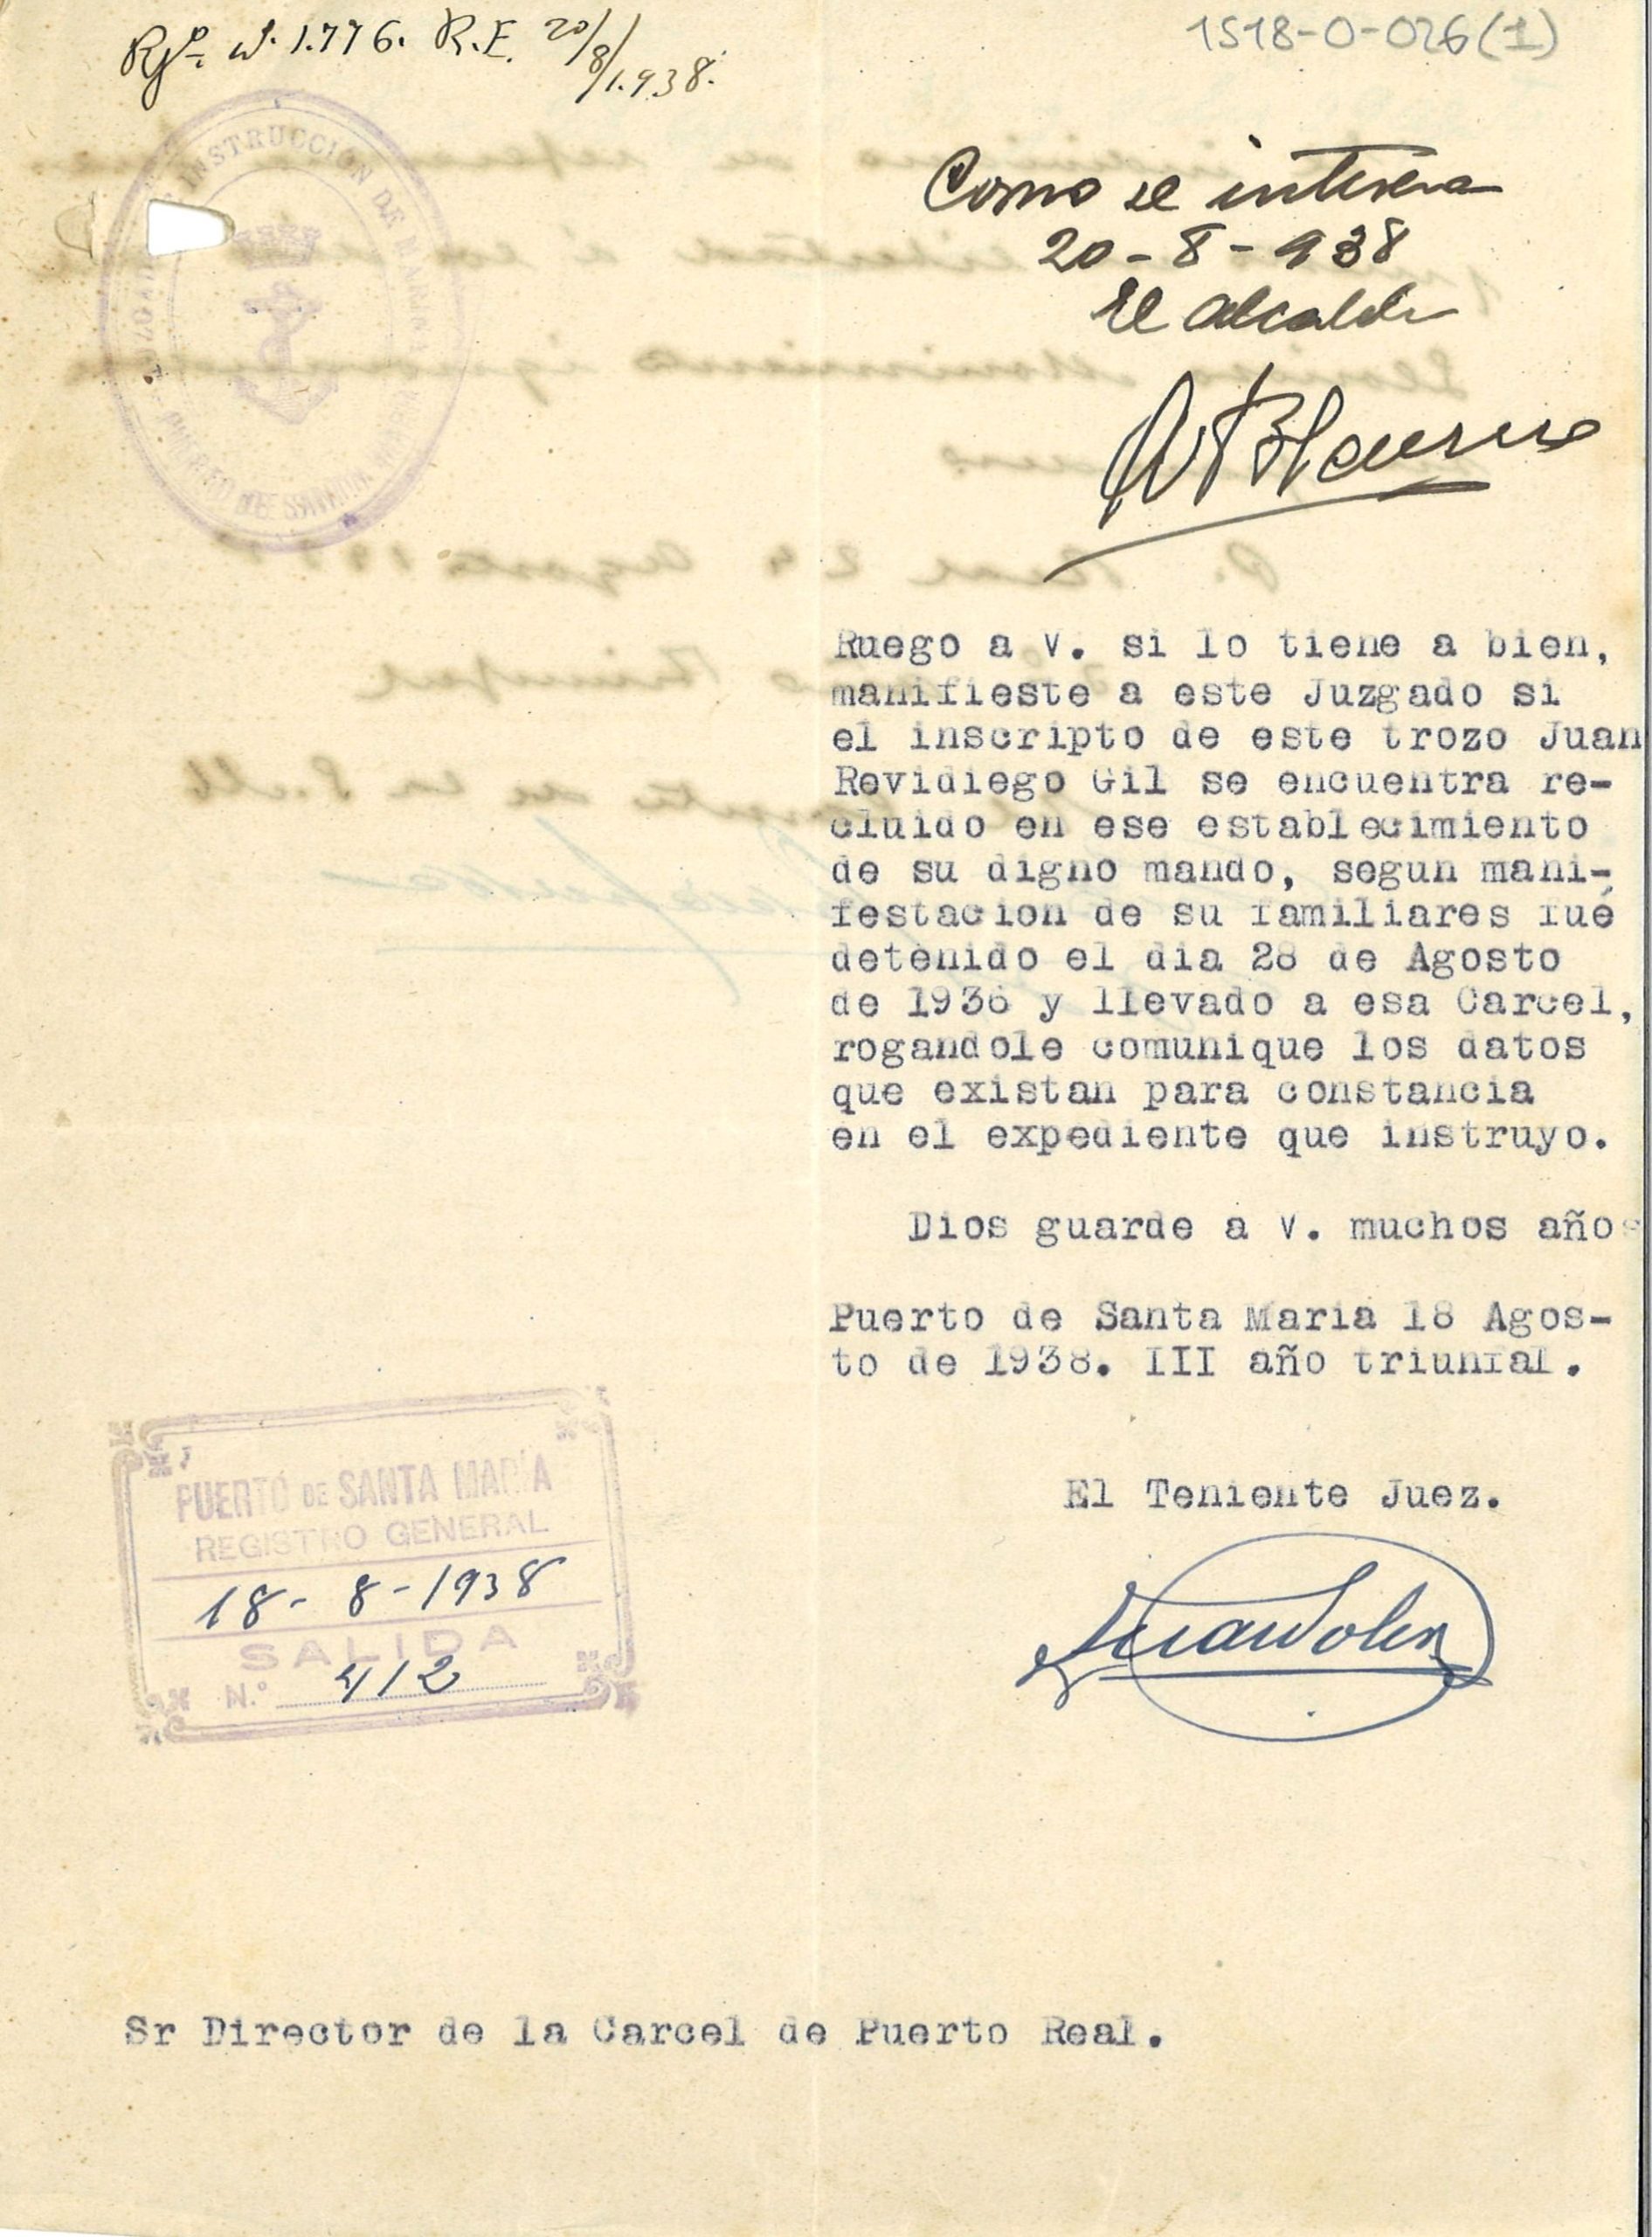 1518-0-026(1)
Rgº. nº. 1.776. R.E. 20/8/1.938.
INSTRUCCIÓN DE MARINA
PUERTO DE SANTA MARIA
Como se interesa
20-8-938
El Alcalde
Ruego a V. si lo tiene a bien,
manifieste a este Juzgado si
el inscripto de este trozo Juan
Revidiego Gil se encuentra re-
cluido en ese establecimiento
de su digno mando, segun mani-
festacion de su familiares fué
detenido el dia 28 de Agosto
de 1936 y llevado a esa Carcel,
rogandole comunique los datos
que existan para constancia
en el expediente que instruyo.
Dios guarde a V. muchos años
Puerto de Santa Maria 18 Agos-
to de 1938. III año triunfal.
El Teniente Juez.
PUERTO DE SANTA MARÍA
REGISTRO GENERAL
18-8-1938
SALIDA
N.º 412
Sr Director de la Carcel de Puerto Real.